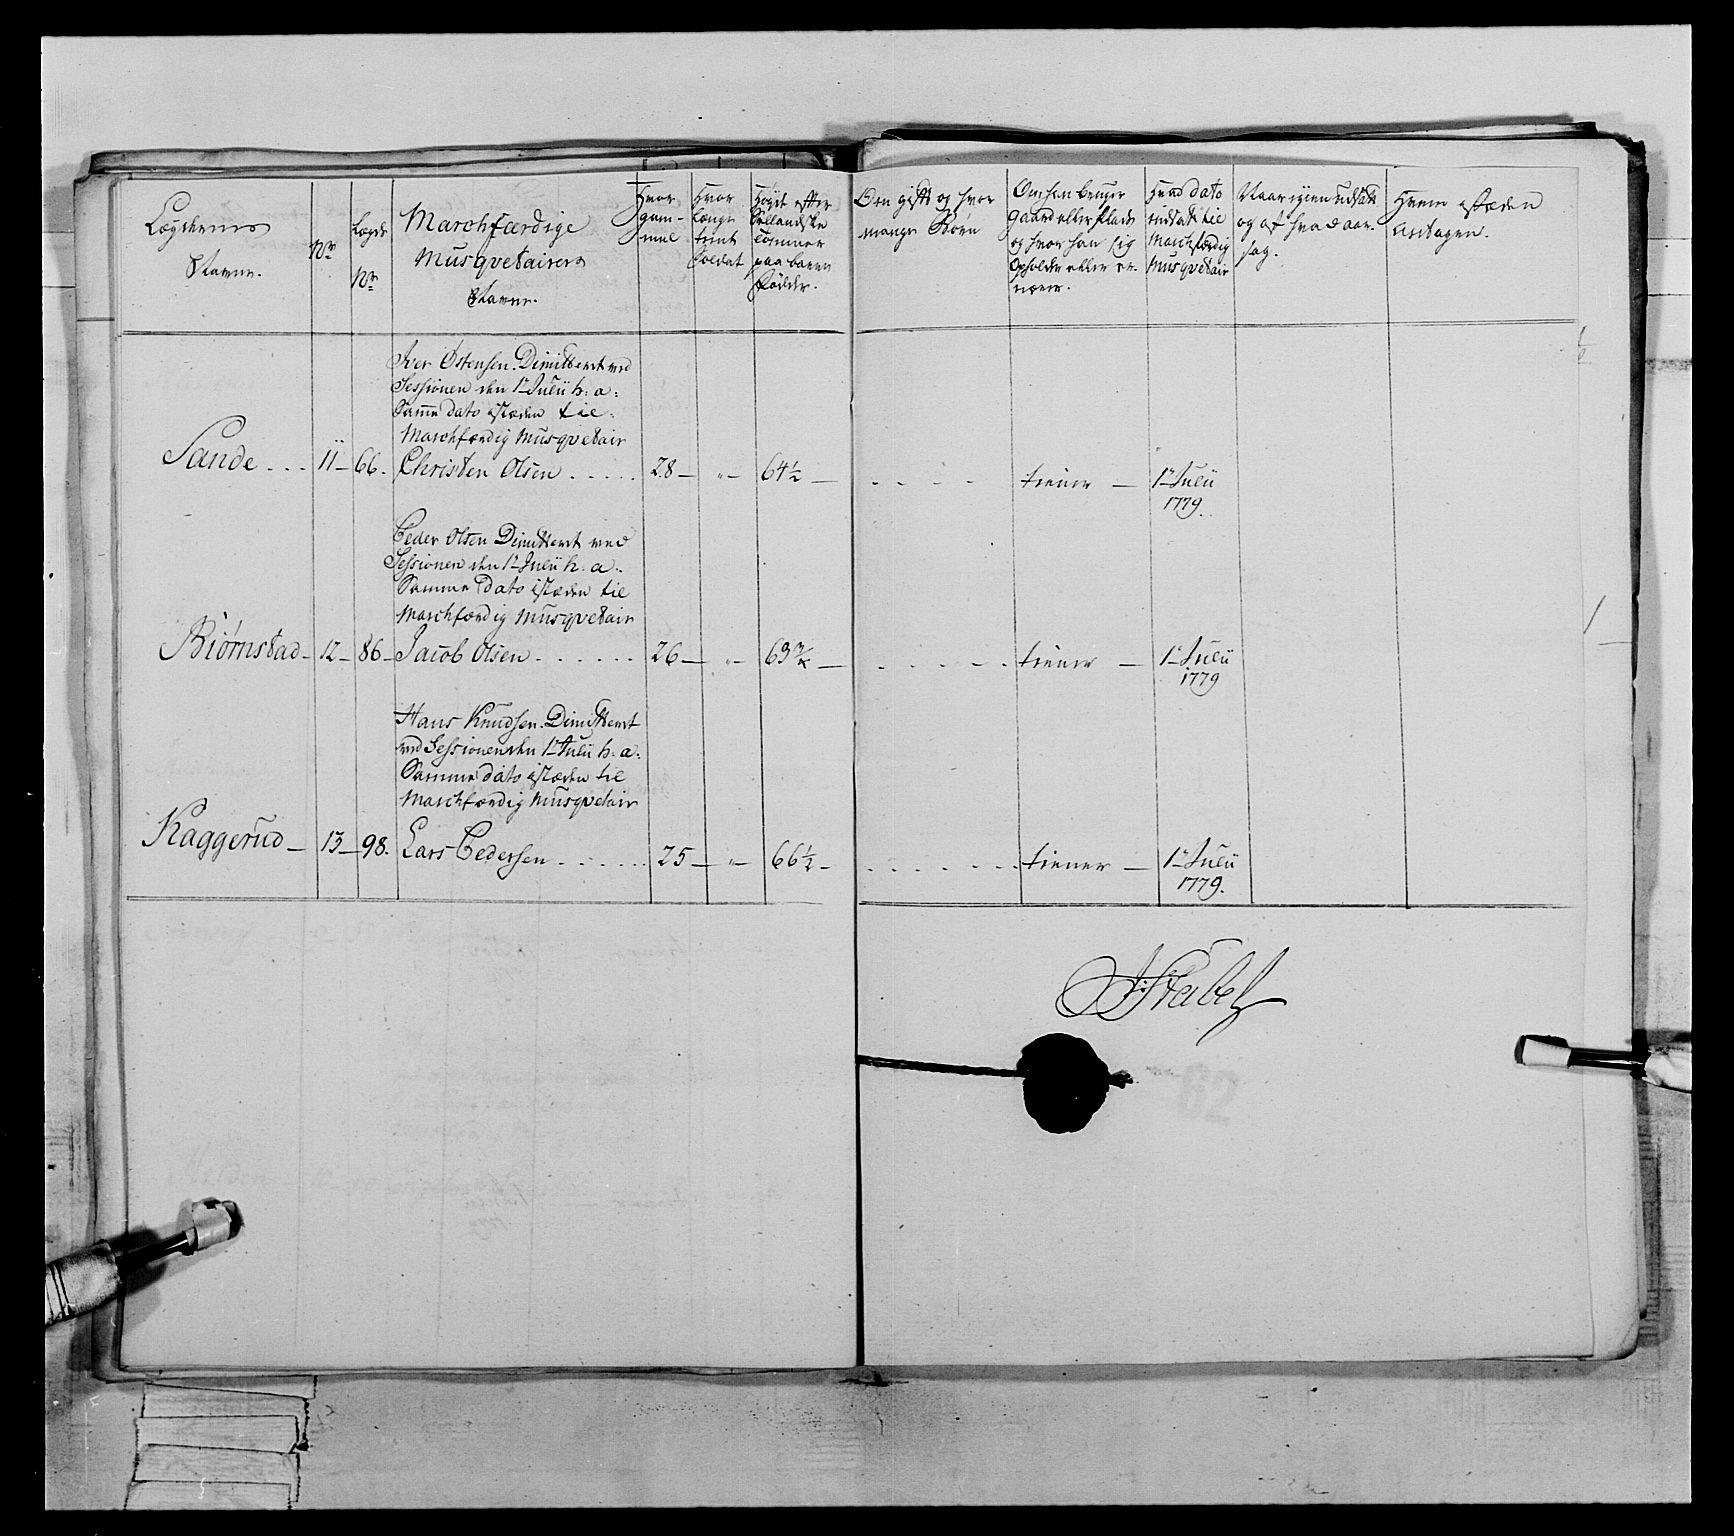 Lægdernes Navne.
No
Lægds No
Marchfærdige Musqvetairers Navne.
Hvor gammel
Hvor længe tient Soldat
Høyde efter Sellandske Tommer paa bare Fødder.
Om gift og hvor mange Børn
Om han bruger gaard eller Plads og hvor han sig opholder eller er-nærer.
Hvad dato indsatt til Marchfærdig Musqvetair
Naar igien udsatt og af hvad aarsag.
Hvem istæden antagen.
Iver Østensen. Dimitteret ved
Sessionen den 1te Julii h: a:
Samme dato istæden til
Marchfærdig Musqvetair
Sande . . . 11 – 66. Christen Olsen . . . . . 28 – „ – 64 1/2 – . . . . tiener – 1te Julii
1779.
Peder Olsen Dimitteret ved
Sessionen den 1te Julii h. a:
Samme dato istæden til
Marchfærdig Musqvetair
Biørnstad – 12 – 86 – Jacob Olsen . . . . . . 26 – „ – 63 – . . . . . tiener – 1te Julii
1779
Hans Knudsen. Dimitteret
ved Sessionen den 1te Julii h: a:
Samme dato istæden til
Marchfærdig Musqvetair
Kaggerud – 13 – 98. Lars Pedersen . . . . . . 25 – „ – 66 1/2 – . . . . . . tiener – 1te Julii
1779.
Stabel
82